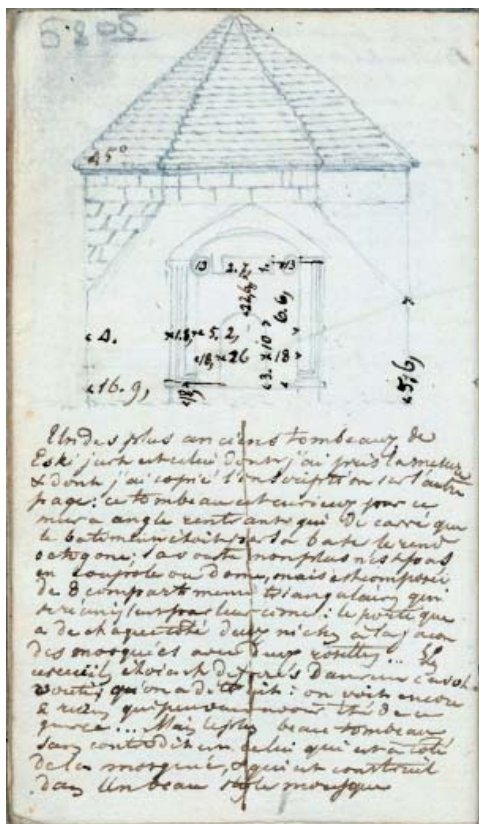 45°
13 2. 7, 1. 13
22,6,
6.6,
4. 1.8, 5.2, 10
1/8, 26 3. 18
16.9, 1/8, 5.6,
Un des plus anciens tombeaux de
Eski est celui dont j'ai pris la mesure
& dont j'ai copié l'inscription sur l'autre
page: ce tombeau est curieux par ce
mur a angle rentrant qui de carré que
le batiment étoit par sa base le rend
octogone; sa voute non plus n'est pas
en coupole ou dome, mais est composée
de 8 compartimens triangulaires qui
se réunissent par leur cime: le portique
a de chaque coté deux niches à la façon
des mosquées avec deux rosettes... Les
cercueils étoient déposés dans un caveau
vouté qu'on a détruit: on voit encore
qui peuvent avoir été de
... Mais le plus beau tombeau
sans contredit est celui qui est a coté
de la mosquée, & qui est construit
dans un beau style moresque